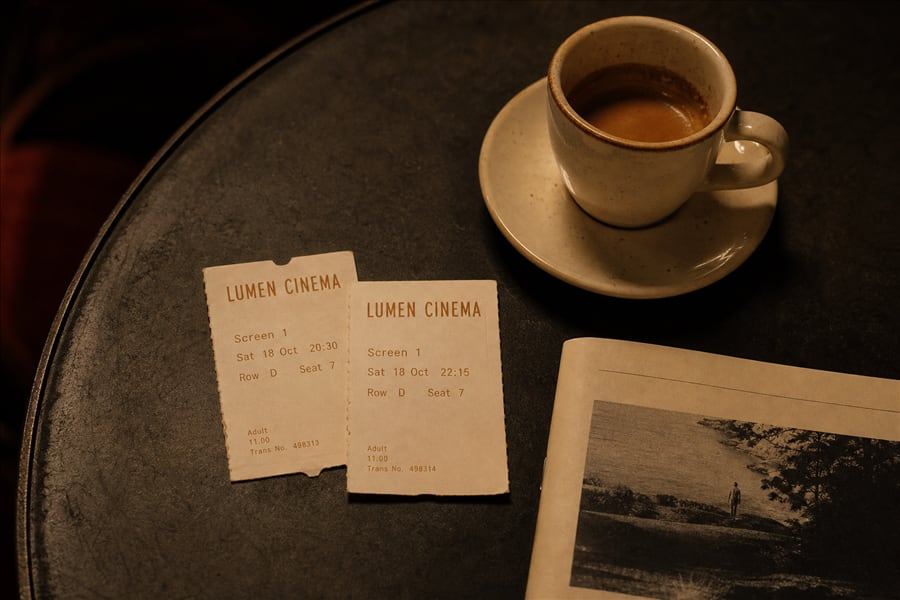 LUMEN CINEMA
Screen 1
Sat 18 Oct 20:30
Row D Seat 7
Adult
11.00
Trans No. 498313
LUMEN CINEMA
Screen 1
Sat 18 Oct 22:15
Row D Seat 7
Adult
11.00
Trans No. 498314